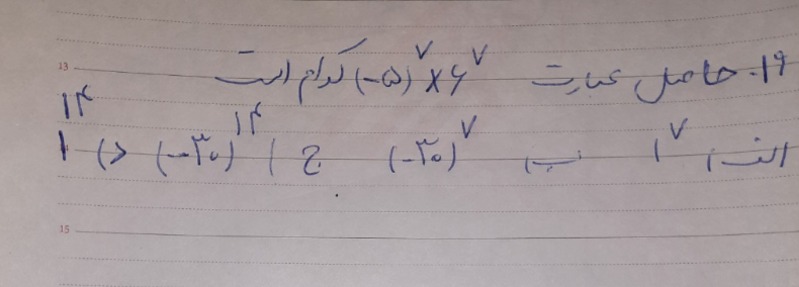 ۱۹. حاصل عبارت (-۵)^۷ × ۶^۷ کدام است
الف) ۱^۷ ب) (-۳۰)^۷ ج) (-۳۰)^۱۴ د) ۱^۱۴
13
15